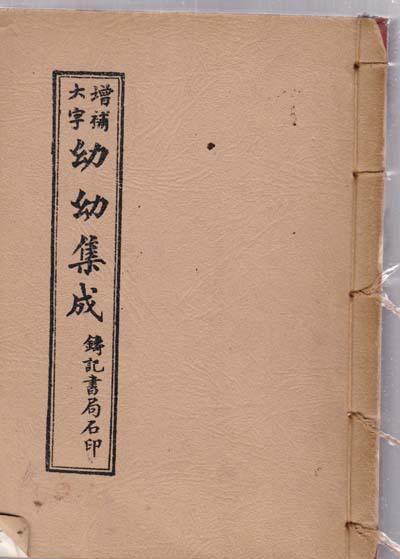 增補
大字
幼幼集成
鑄記書局石印